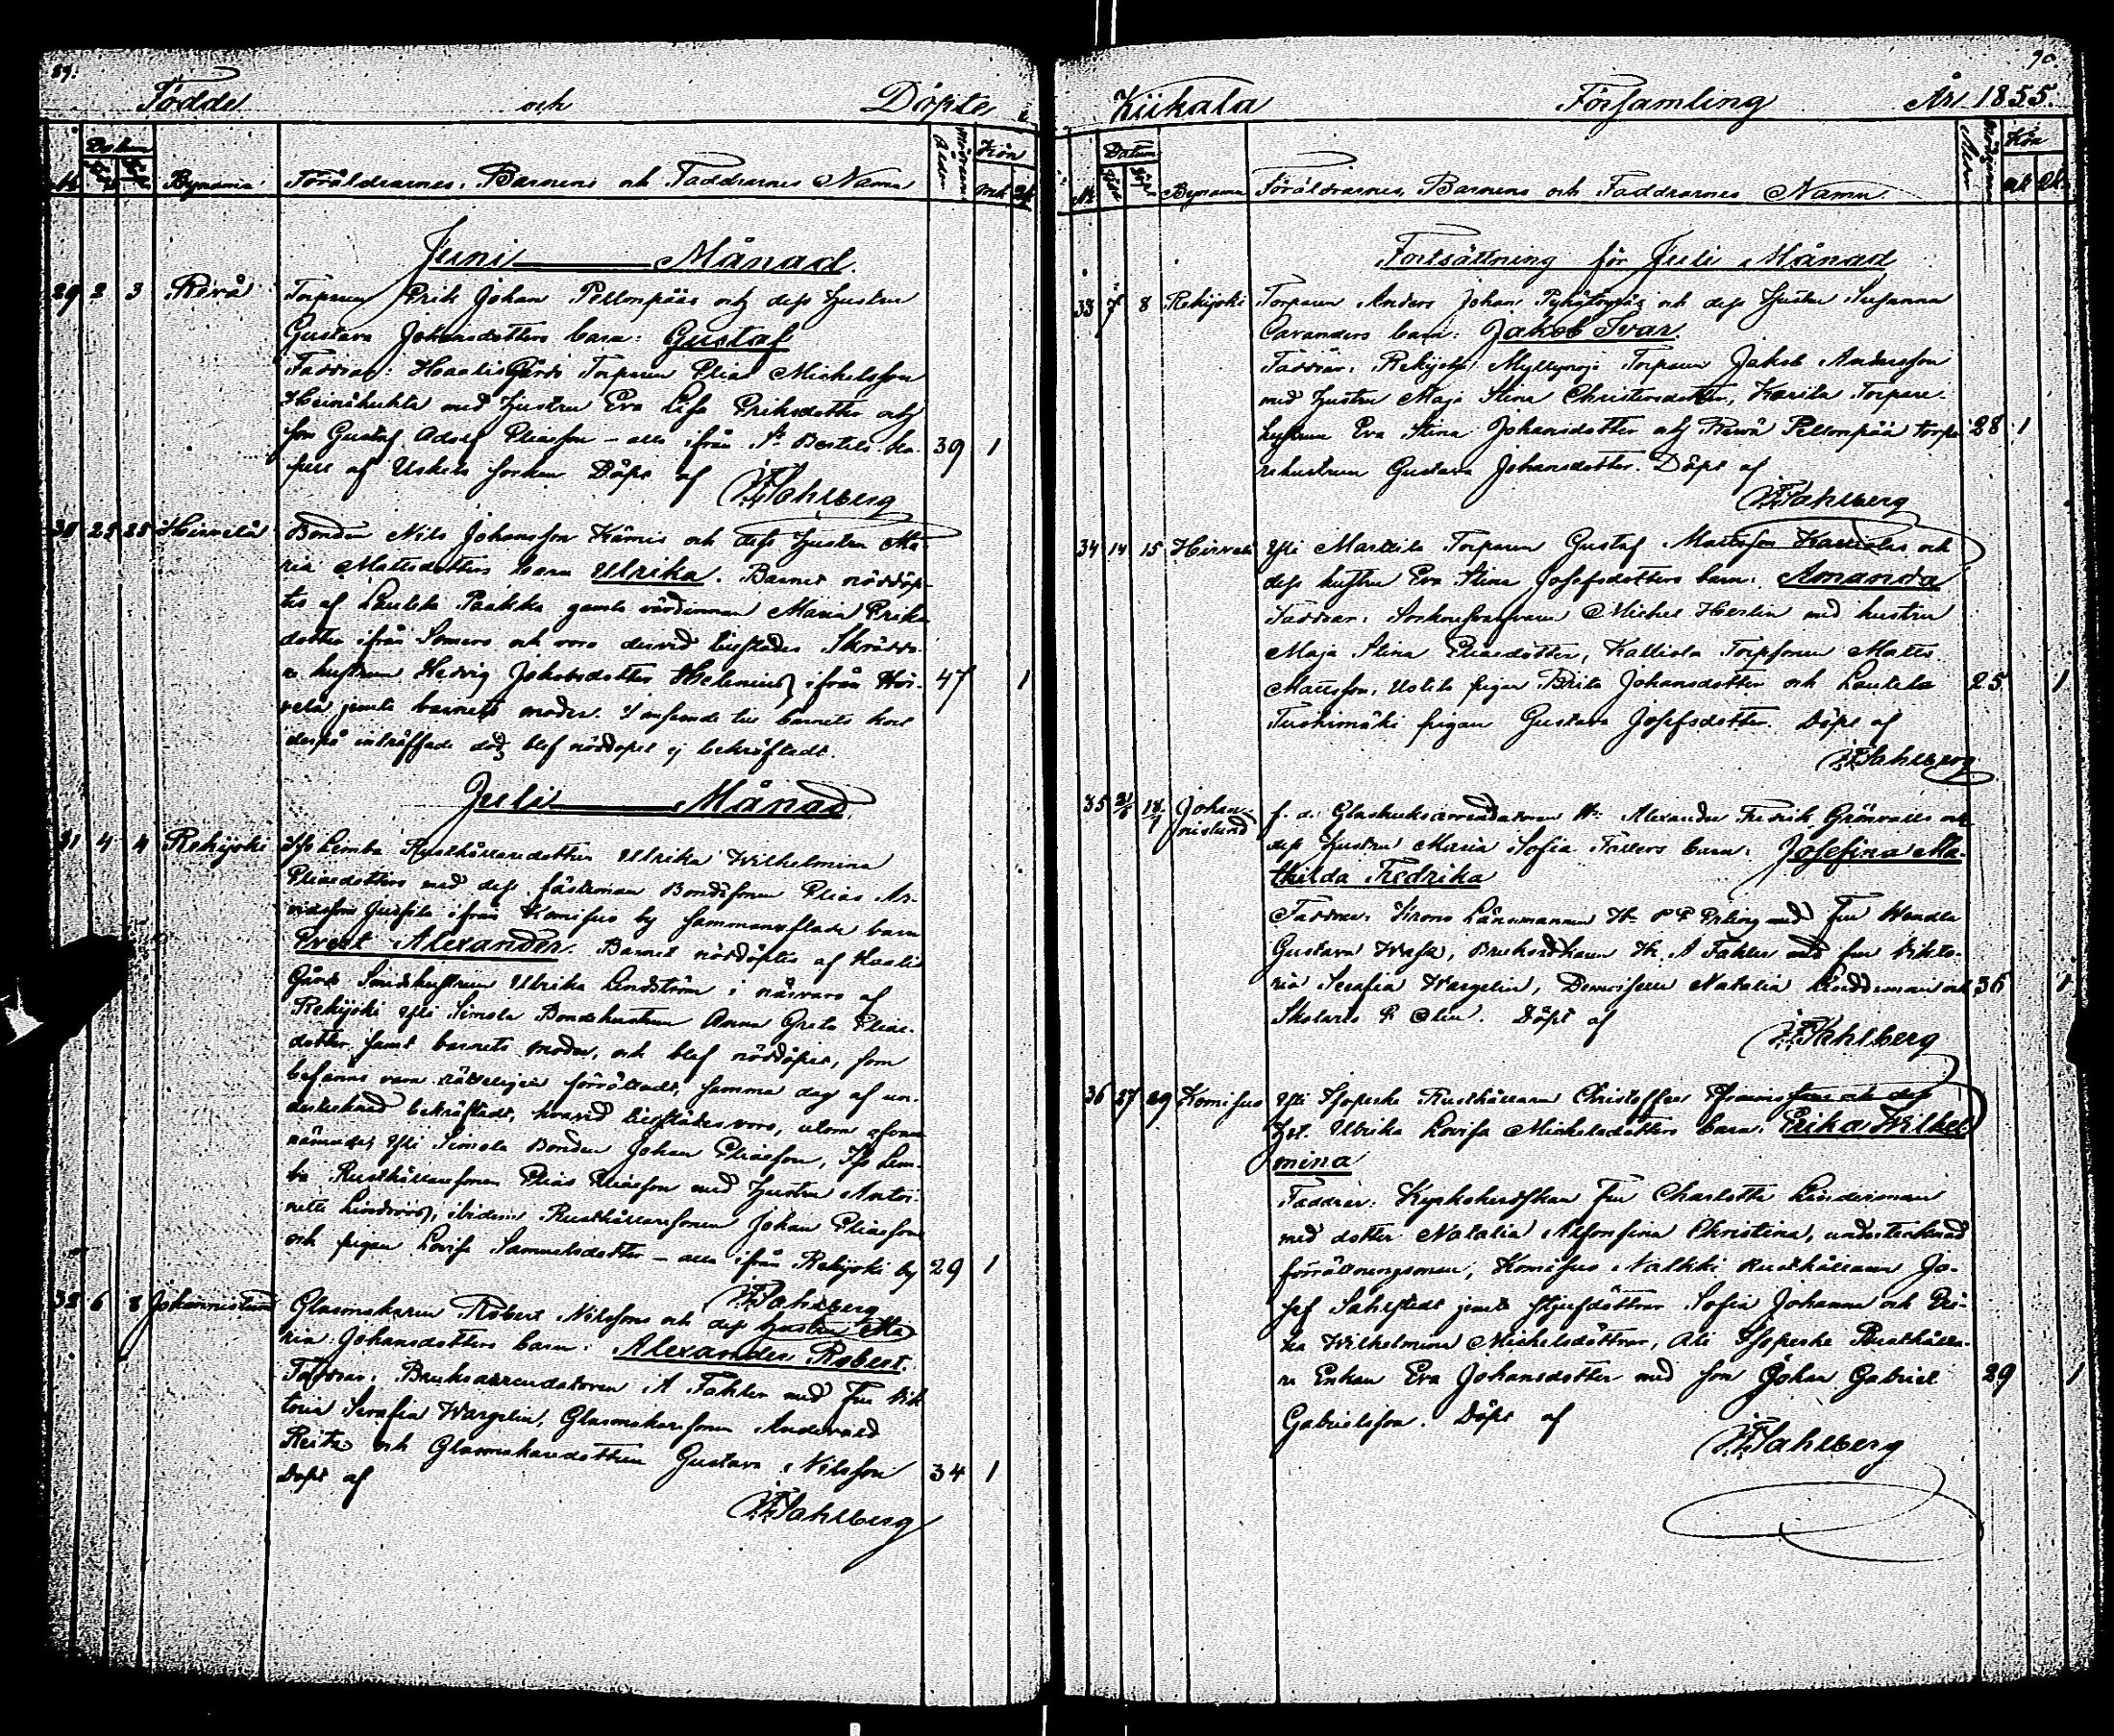 89.
Födde och Döpte i
Datum
Byname Föräldrarnes, Barnens och Faddrarnes Namn Mödrarnes Ålder Kön
Mk Qk
Juni Månad.
29 2 3 Rewå Torparen Erik Johan Pellonpääs och dess hustru
Gustava Johansdotters barn: Gustaf
Faddrar: Haalis Gårds Torparen Elias Michelsson
Heinikukta med hustru Eva Lisa Eriksdotter och
son Gustaf Adolf Eliasson – alla ifrån St Bertils Ka- 39 1
pell af Uskela Socken Döpt af
Wahlberg
30 25 25 Hirvelä Bonden Nils Johansson Kärnis och dess hustru Ma-
ria Mattsdotters barn Ulrika. Barnet nöddöp-
tes af Lautela Paakka gamla värdinnan Maria Eriks
dotter ifrån Somero och voro dervid tillstädes Skrädda-
re hustrun Hedvig Jakobsdotter Helenius ifrån Hir- 47 1
vela jemte barnets moder. I anseende till barnets kort
derpå inträffade död, blef nöddopet ej bekräftadt.
Juli Månad.
31 4 4 Rekijoki Iso Lemba Rusthållaredotter Ulrika Wilhelmina
Eliasdotters med dess fästeman Bondesonen Elias Ar-
vidsson ifrån Komisuo by sammanaflade barn
Evert Alexander. Barnet nöddöptes af Haalis
Gårds Smidshustrun Ulrika Lindström i närvaro af
Rekijoki Yli Simola Bondehustrun Anna Greta Elias-
dotter samt barnets moder, och blef nöddopet, som
befanns vara rätteligen förrättadt, samma dag af un-
dertecknad bekräftadt, hvarvid tillstädes voro, utom ofvan
nämnde, Yli Simola Bonden Johan Eliasson, Iso Lem-
ba Rusthållaresonen Elias Eliasson med hustru Antoi-
nette Lindroos, ibidem Rusthållaresonen Johan Eliasson
och pigan Lovisa Samuelsdotter – alla ifrån Rekijoki by 29 1
Wahlberg
32 6 8 Johannislund Glasmakaren Robert Nilssons och dess hustru Ma-
ria Johansdotters barn: Alexander Robert.
Faddrar: Bruksarrendatoren A Fahler med Fru Vik
toria Serafia Wargelin, Glasmakaresonen Andevard
Reitz och Glasmakaredottren Gustava Nilsson 34 1
Döpt af
Wahlberg
90.
Kiikala Församling År 1855.
Datum
No Födde Döpte Byname Föräldrarnes, Barnens och Faddrarnes Namn. Mödrarnes Ålder Kön
Mk Qk
Fortsättning för Juli Månad
33 7 8 Rekijoki Torparen Anders Johan och dess hustru Susanna
Caranders barn: Jakob Ivar.
Faddrar: Rekijoki Myllynoja Torparen Jakob Andersson
med hustru Maja Stina Christersdotter, Karila Torpare-
hustrun Eva Stina Johansdotter och Rewå Pellonpää torpa 28 1
rehustrun Gustava Johansdotter. Döpt af
Wahlberg
34 14 15 Hirvelä Yli Marttila Torparen Gustaf Mattsson Kalliolas och
dess hustru Eva Stina Josefsdotters barn: Amanda
Faddrar: Michel Herlin med hustru
Maja Stina Eliasdotter, Kalliola Torpsonen Matts
Mattsson, Ustila pigan Brita Johansdotter och Lautela 25 1
Tuohimäki pigan Gustava Josefsdotter. Döpt af
Wahlberg
35 21/6 14/7 Johan-
nislund f. d. Glasbruksarrendatoren Hr Alexander Fredrik Grönvalls och
dess hustru Maria Sofia barn: Josefina Ma-
thilda Fredrika
Faddrar: Krono Länsmannen Hr med Fru Wendla
Gustava Wasa, Brukspatron Hr A Fahler med fru Vikto-
ria Serafia Wargelin, Demoisellen Natalia Linderman och 36 1
Skolaris Döpt af
Wahlberg
36 27 29 Komisuo Yli Isopeska Rusthållaren Christoffer och dess
hst. Ulrika Lovisa Michelsdotters barn: Erika Wilhel-
mina
Faddrar: Kyrkoherdskan Fru Charlotta Linderman
med dotter Natalia Alfonsina Christina, undertecknad
förrättningsman, Komisuo Nalkki Rusthållaren Jo-
sef Sahlstedt jemte styfdöttrar Sofia Johanna och Eri-
ka Wilhelmina Michelsdöttrar, Ali Isopeska Rusthålla-
re Enkan Eva Johansdotter med son Johan Gabriel 29 1
Gabrielsson. Döpt af
Wahlberg